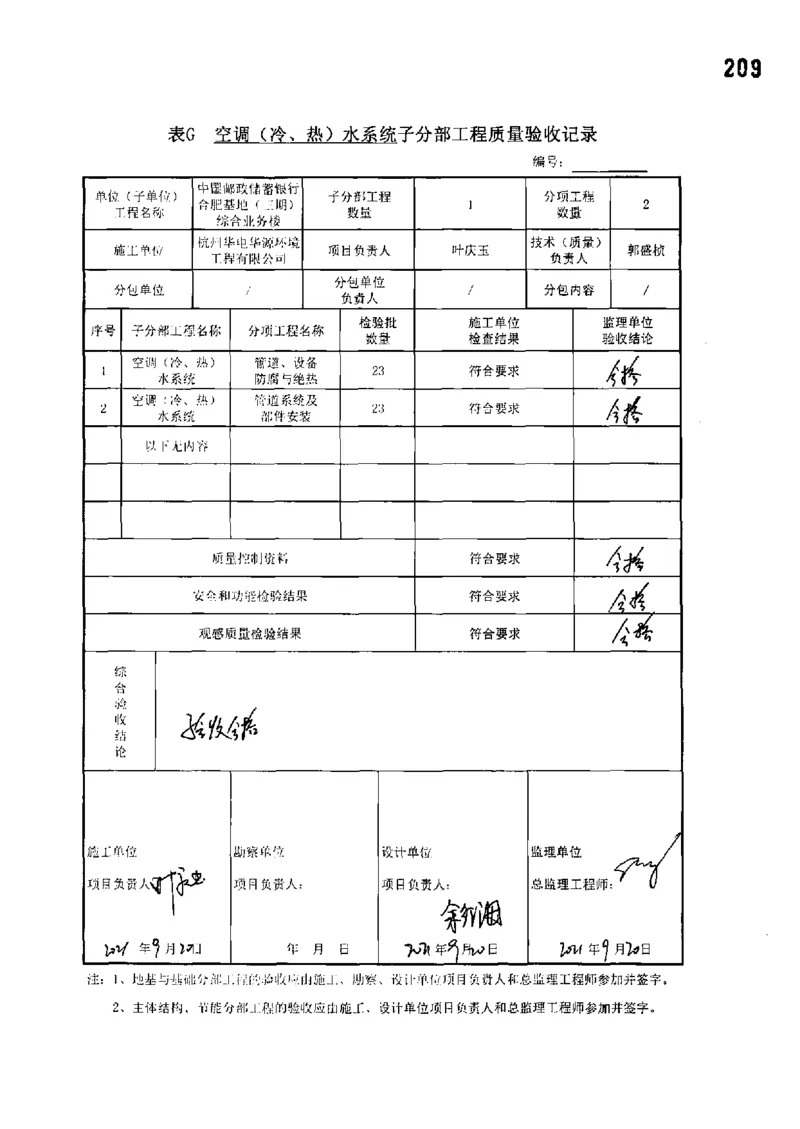 209
表G 空调（冷、热）水系统子分部工程质量验收记录
编号：
单位（子单位）
工程名称
中国邮政储蓄银行
合肥基地（二期）
综合业务楼
子分部工程
数量
1
分项工程
数量
2
施工单位
杭州华电华源环境
工程有限公司
项目负责人
叶庆玉
技术（质量）
负责人
郭盛桢
分包单位
/
分包单位
负责人
/
分包内容
/
序号
子分部工程名称
分项工程名称
检验批
数量
施工单位
检查结果
监理单位
验收结论
1
空调（冷、热）
水系统
管道、设备
防腐与绝热
23
符合要求
合格
2
空调（冷、热）
水系统
管道系统及
部件安装
23
符合要求
合格
以下无内容
质量控制资料
符合要求
合格
安全和功能检验结果
符合要求
合格
观感质量检验结果
符合要求
合格
综合验收结论
验收合格
施工单位
项目负责人
2021年9月20日
勘察单位
项目负责人：
年 月 日
设计单位
项目负责人：
2021年9月20日
监理单位
总监理工程师：
2021年9月20日
注：1、地基与基础分部工程的验收应由施工、勘察、设计单位项目负责人和总监理工程师参加并签字。
2、主体结构、节能分部工程的验收应由施工、设计单位项目负责人和总监理工程师参加并签字。